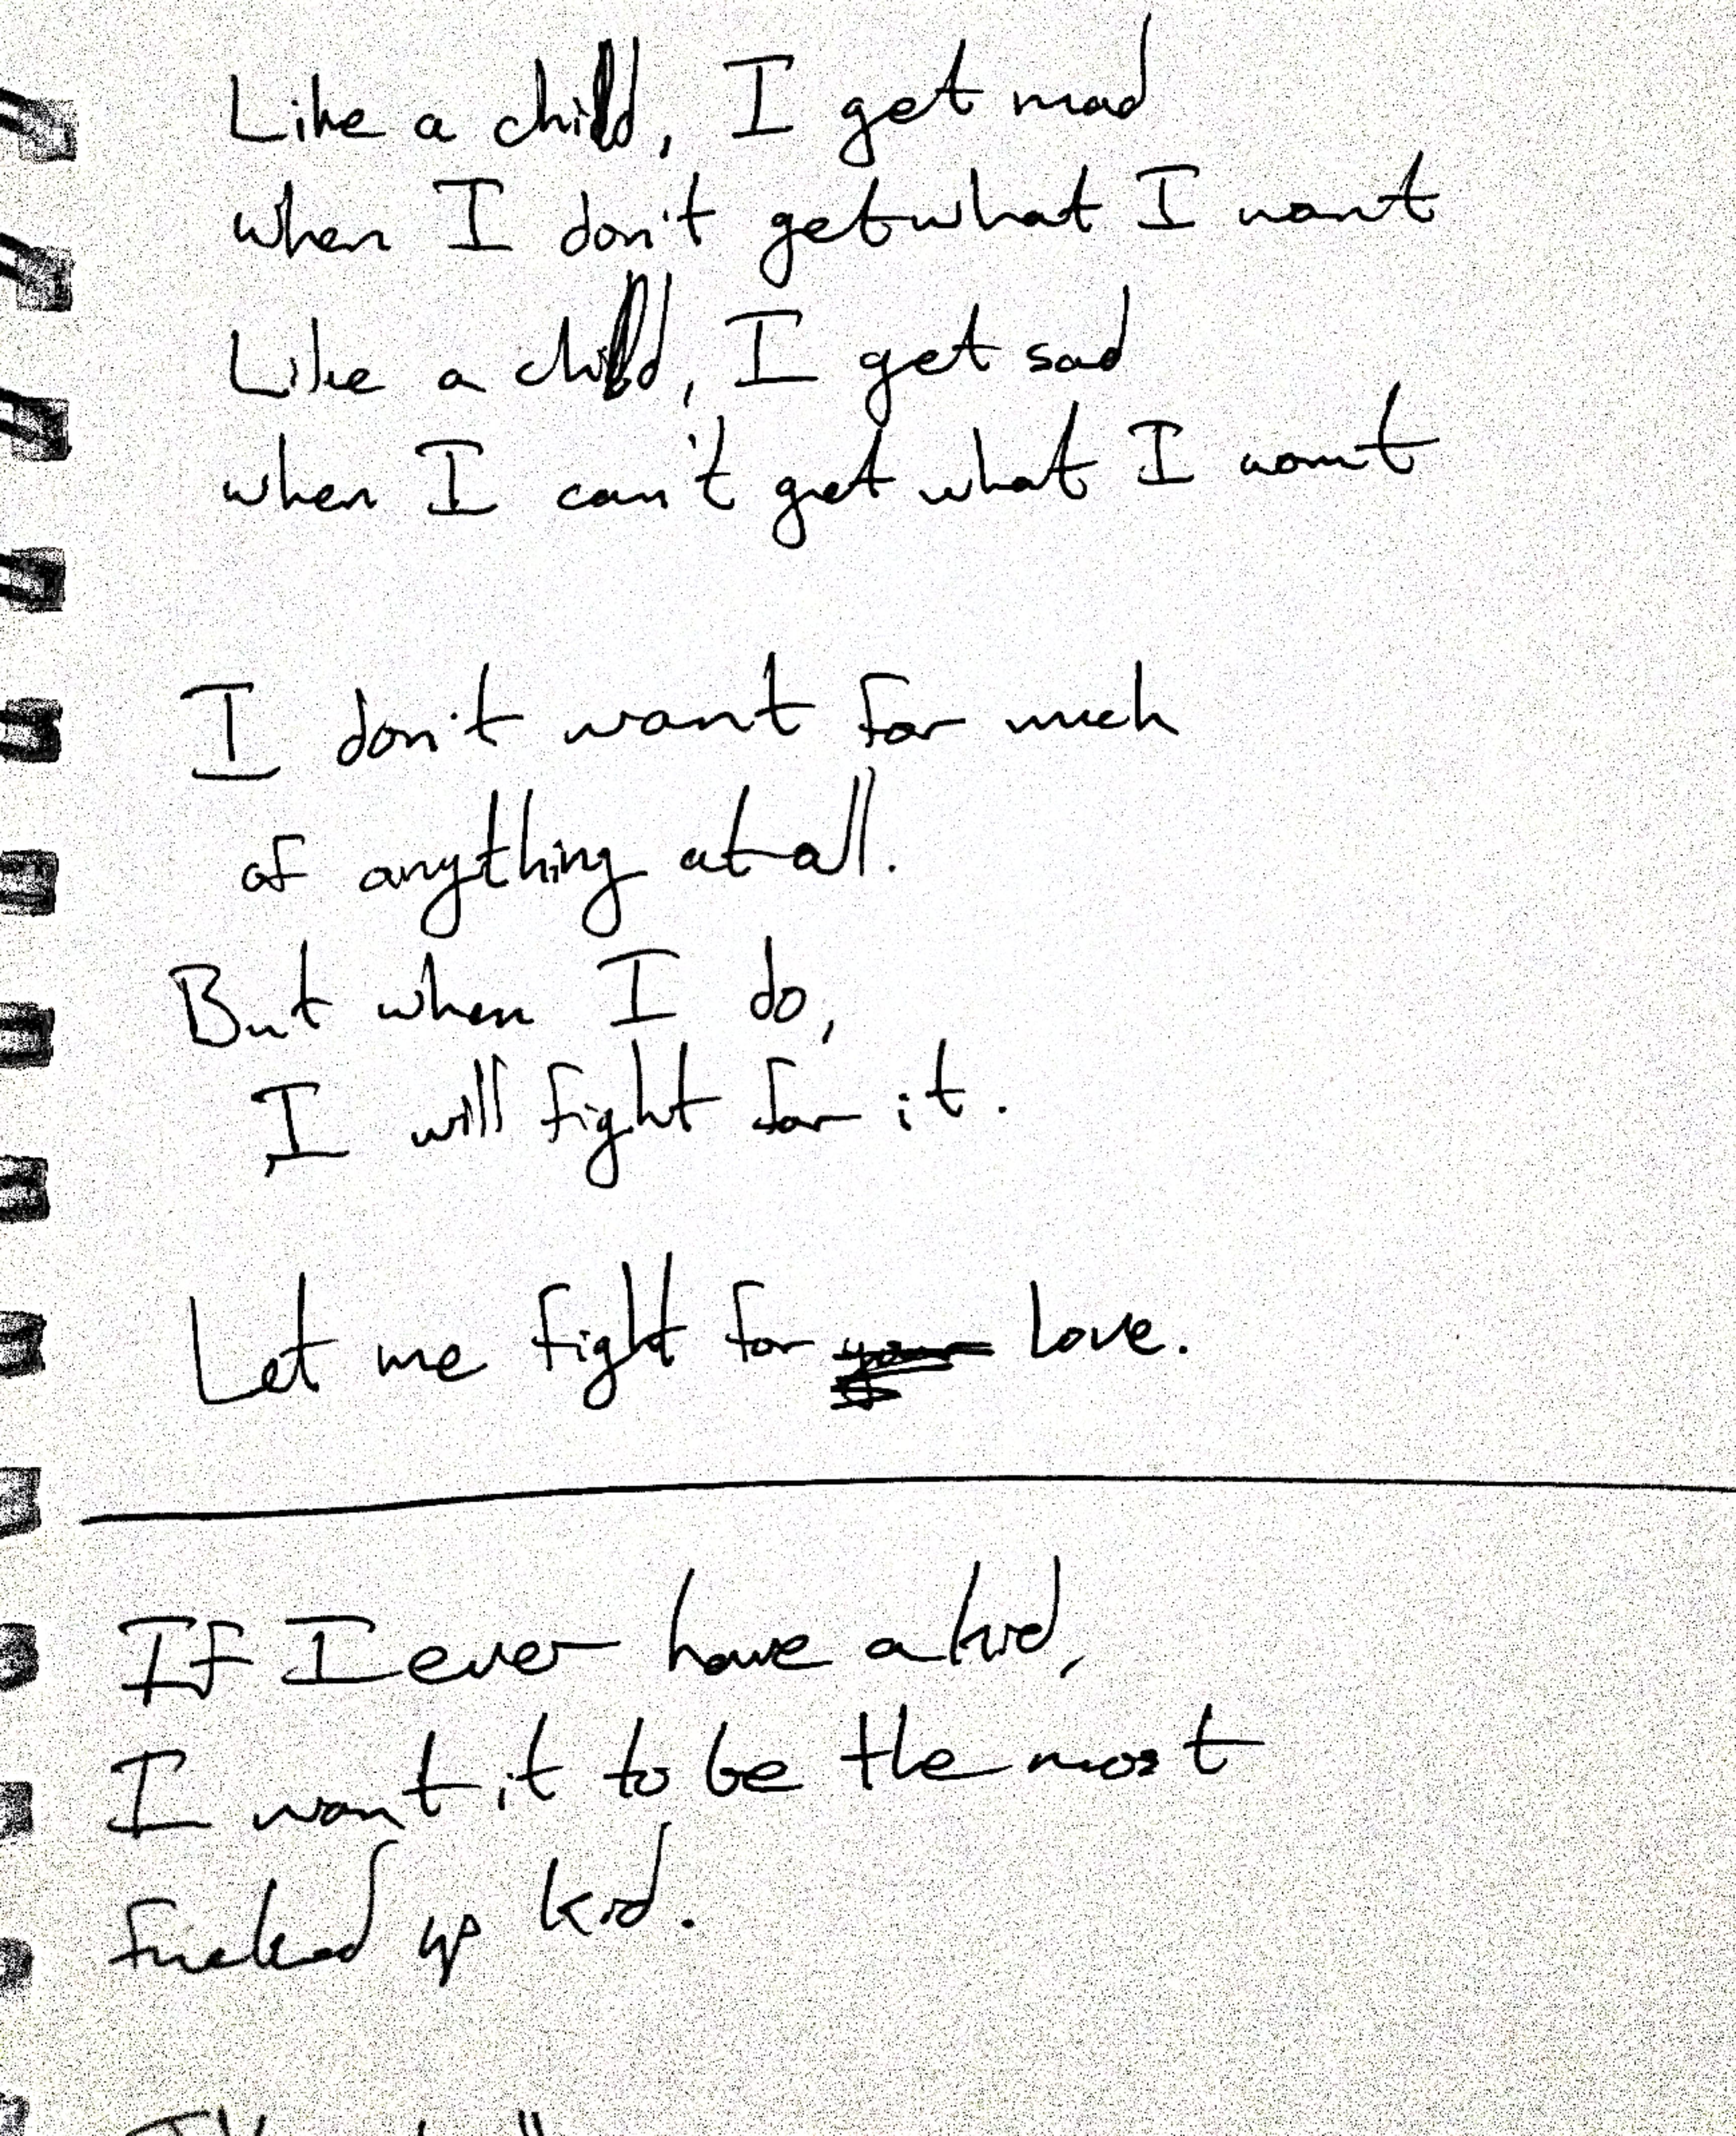 Like a child, I get mad
when I don't get what I want
Like a child, I get sad
when I can't get what I want
I don't want for much
of anything at all.
But when I do,
I will fight for it.
Let me fight for your love.
If I ever have a kid,
I want it to be the most
fucked up kid.